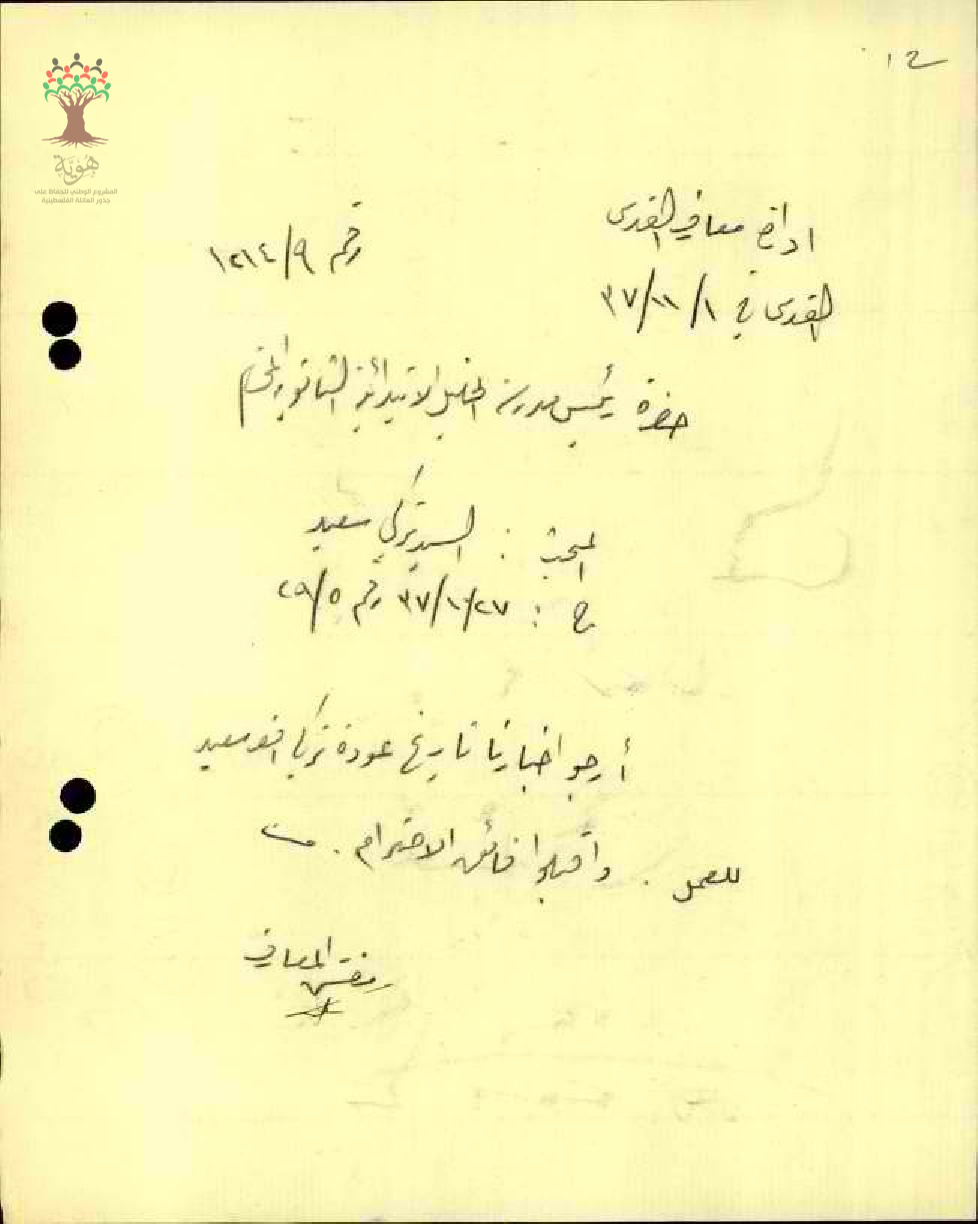 ١٢
هُوِيَّة
المشروع الوطني للحفاظ على
جذور العائلة الفلسطينية
ادارة معارف القدس
رقم ١٢١٤/٩
القدس في ٣٧/١١/١
حضرة رئيس مدرسة الخليل الابتدائية الثانوية المحترم
المبحث : السيد تركي سعيد
ج : ٣٧/١٠/٢٧ رقم ٢٩/٥
أرجو اخبارنا تاريخ عودة تركي افندي سعيد
للعمل . واقبلوا فائق الاحترام .
مفتش المعارف